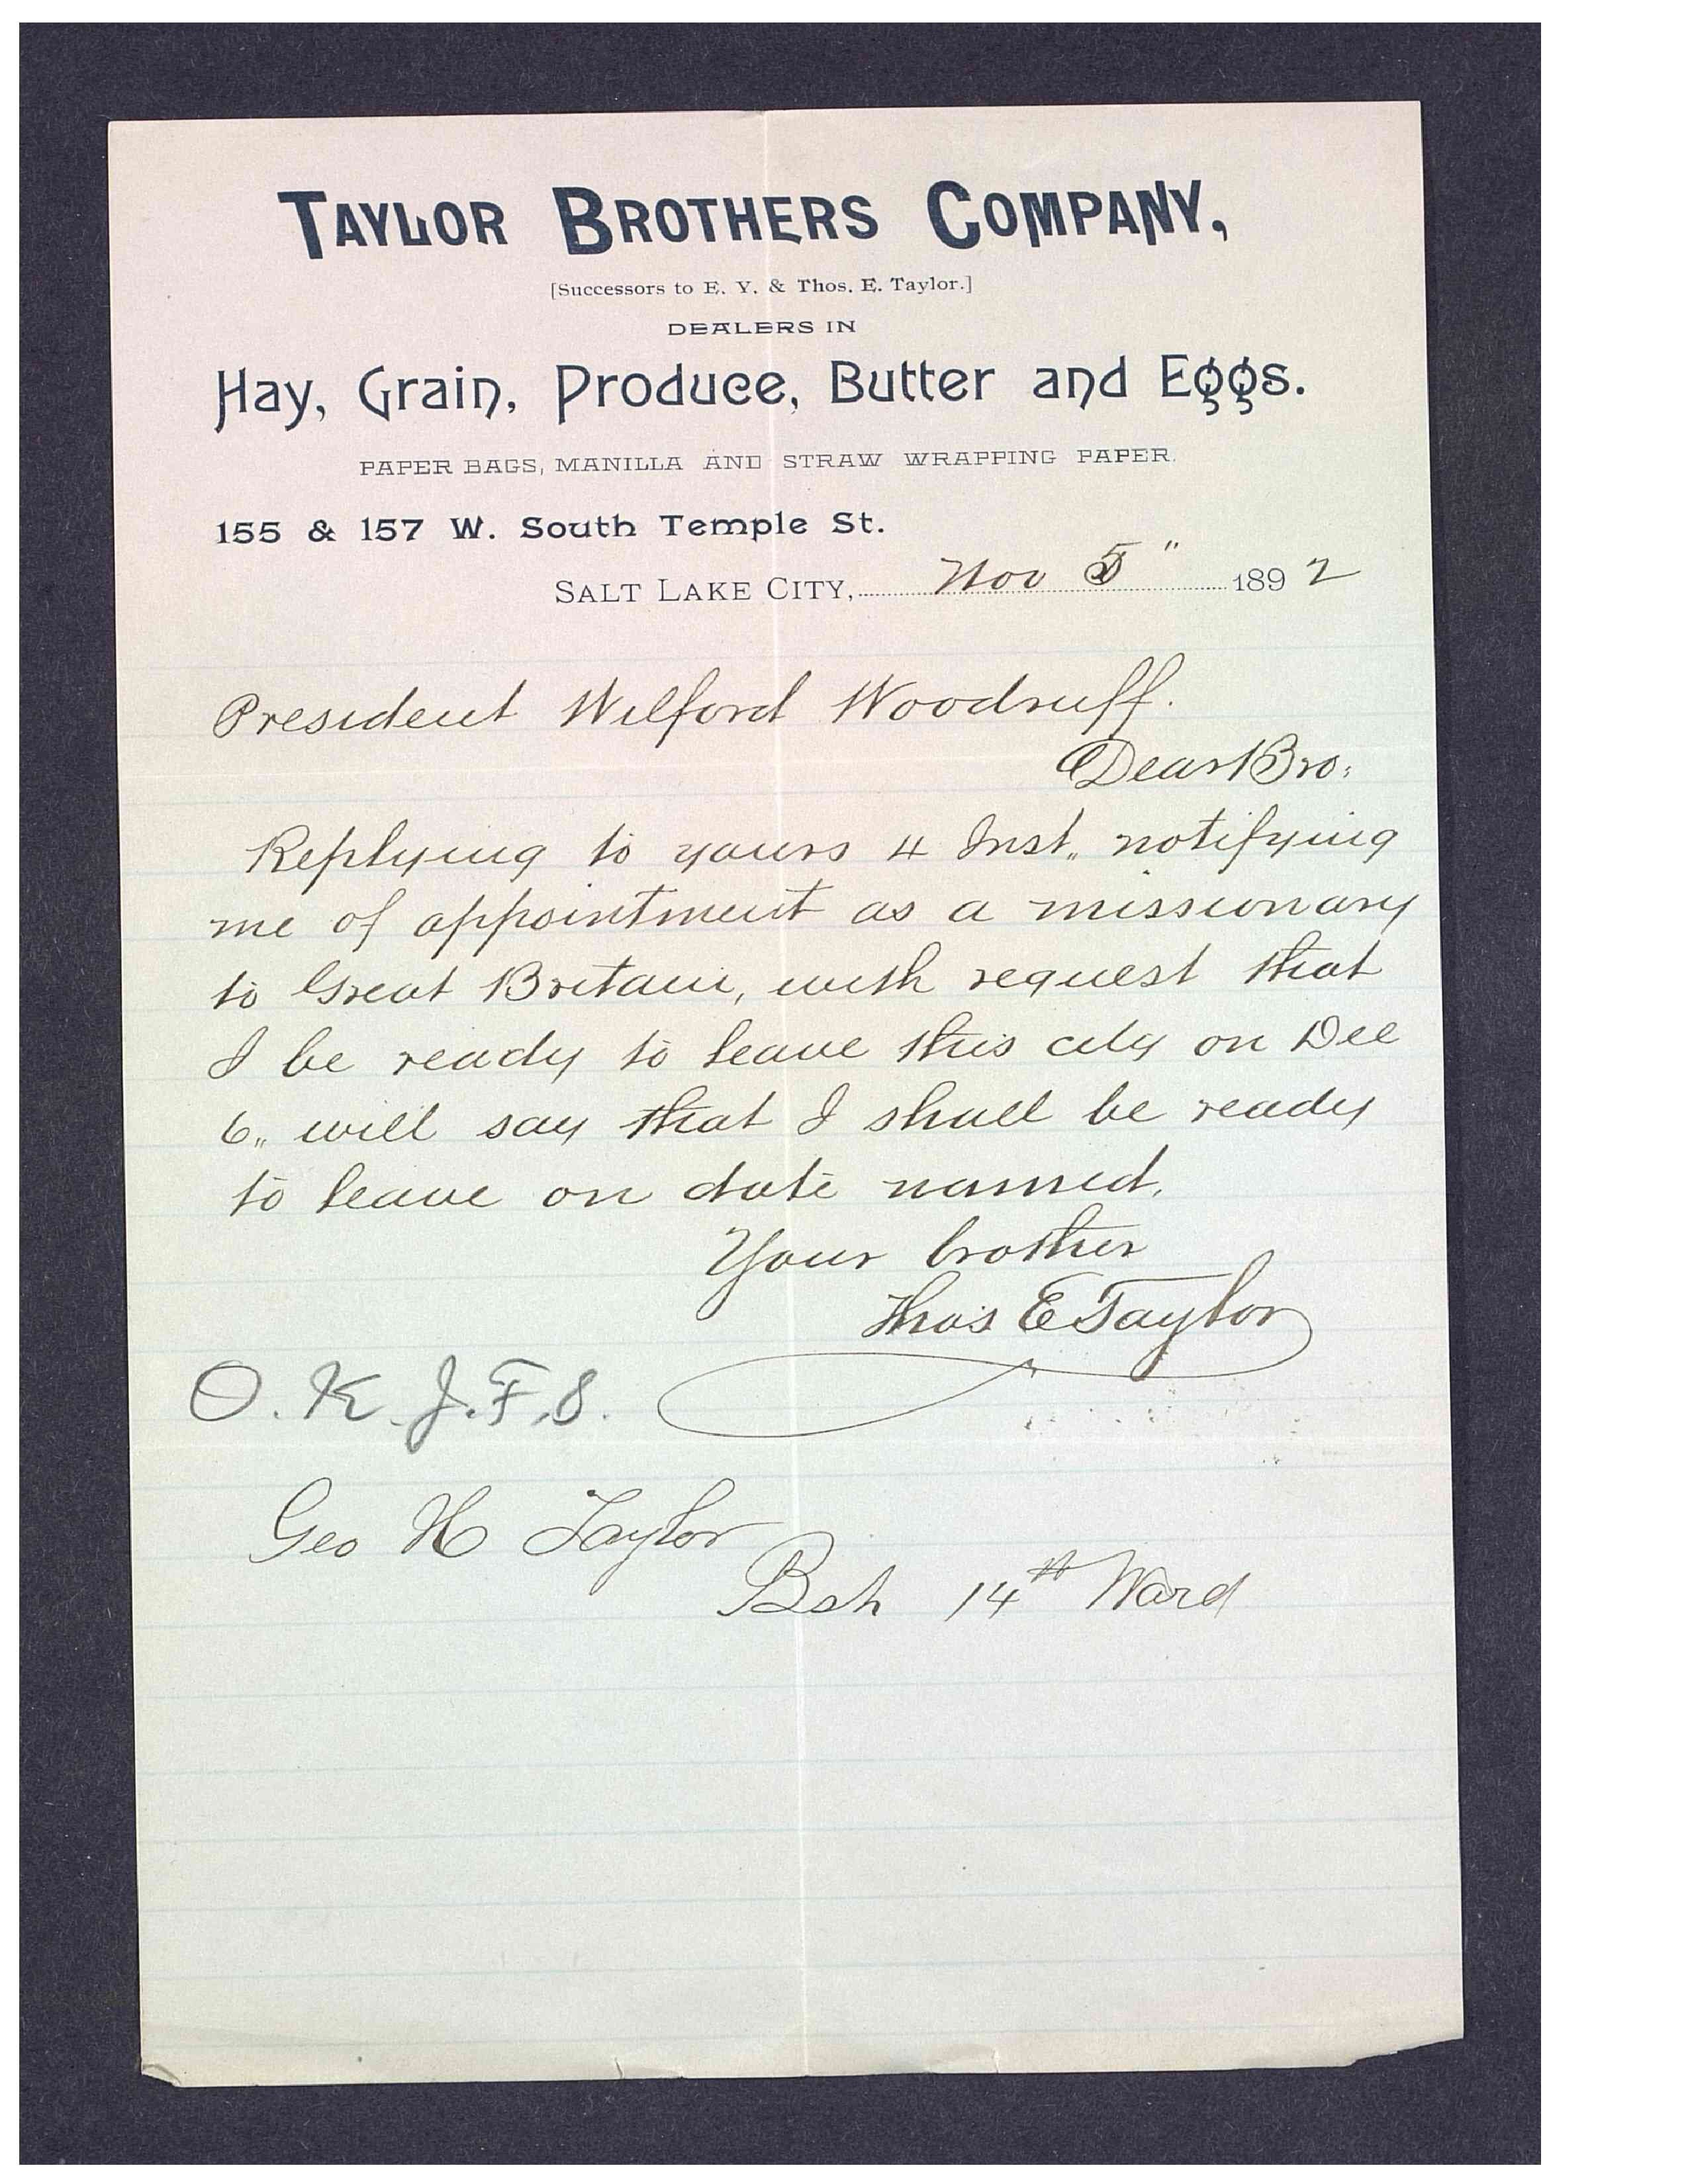 TAYLOR BROTHERS COMPANY,
[Successors to E. Y. & Thos. E. Taylor.]
DEALERS IN
Hay, Grain, Produce, Butter and Eggs.
PAPER BAGS, MANILLA AND STRAW WRAPPING PAPER.
155 & 157 W. South Temple St.
SALT LAKE CITY, Nov 5" 1892
President Wilford Woodruff.
Dear Bro:
Replying to yours 4 Inst,, notifying
me of appointment as a missionary
to Great Britain, with request that
I be ready to leave this city on Dec
6,, will say that I shall be ready
to leave on date named.
Your brother
Thos E Taylor
O.K. J.F.S.
Geo H Taylor
Bsh 14th Ward